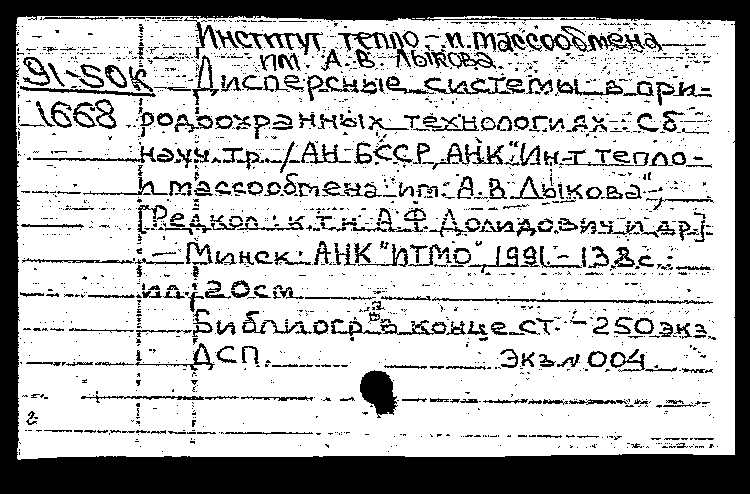 Институт тепло- и массообмена
им. А.В. Лыкова.
91-50к
Дисперсные системы в при-
1668
родоохранных технологиях: Сб.
науч. тр. / АН БССР, АНК "Ин-т тепло-
и массообмена им. А.В. Лыкова";
[Редкол.: к.т.н. А.Ф. Долидович и др.].
— Минск: АНК "ИТМО", 1991. - 138 с.:
ил.; 20см
Библиогр. в конце ст. - 250 экз
ДСП. Экз N 004.